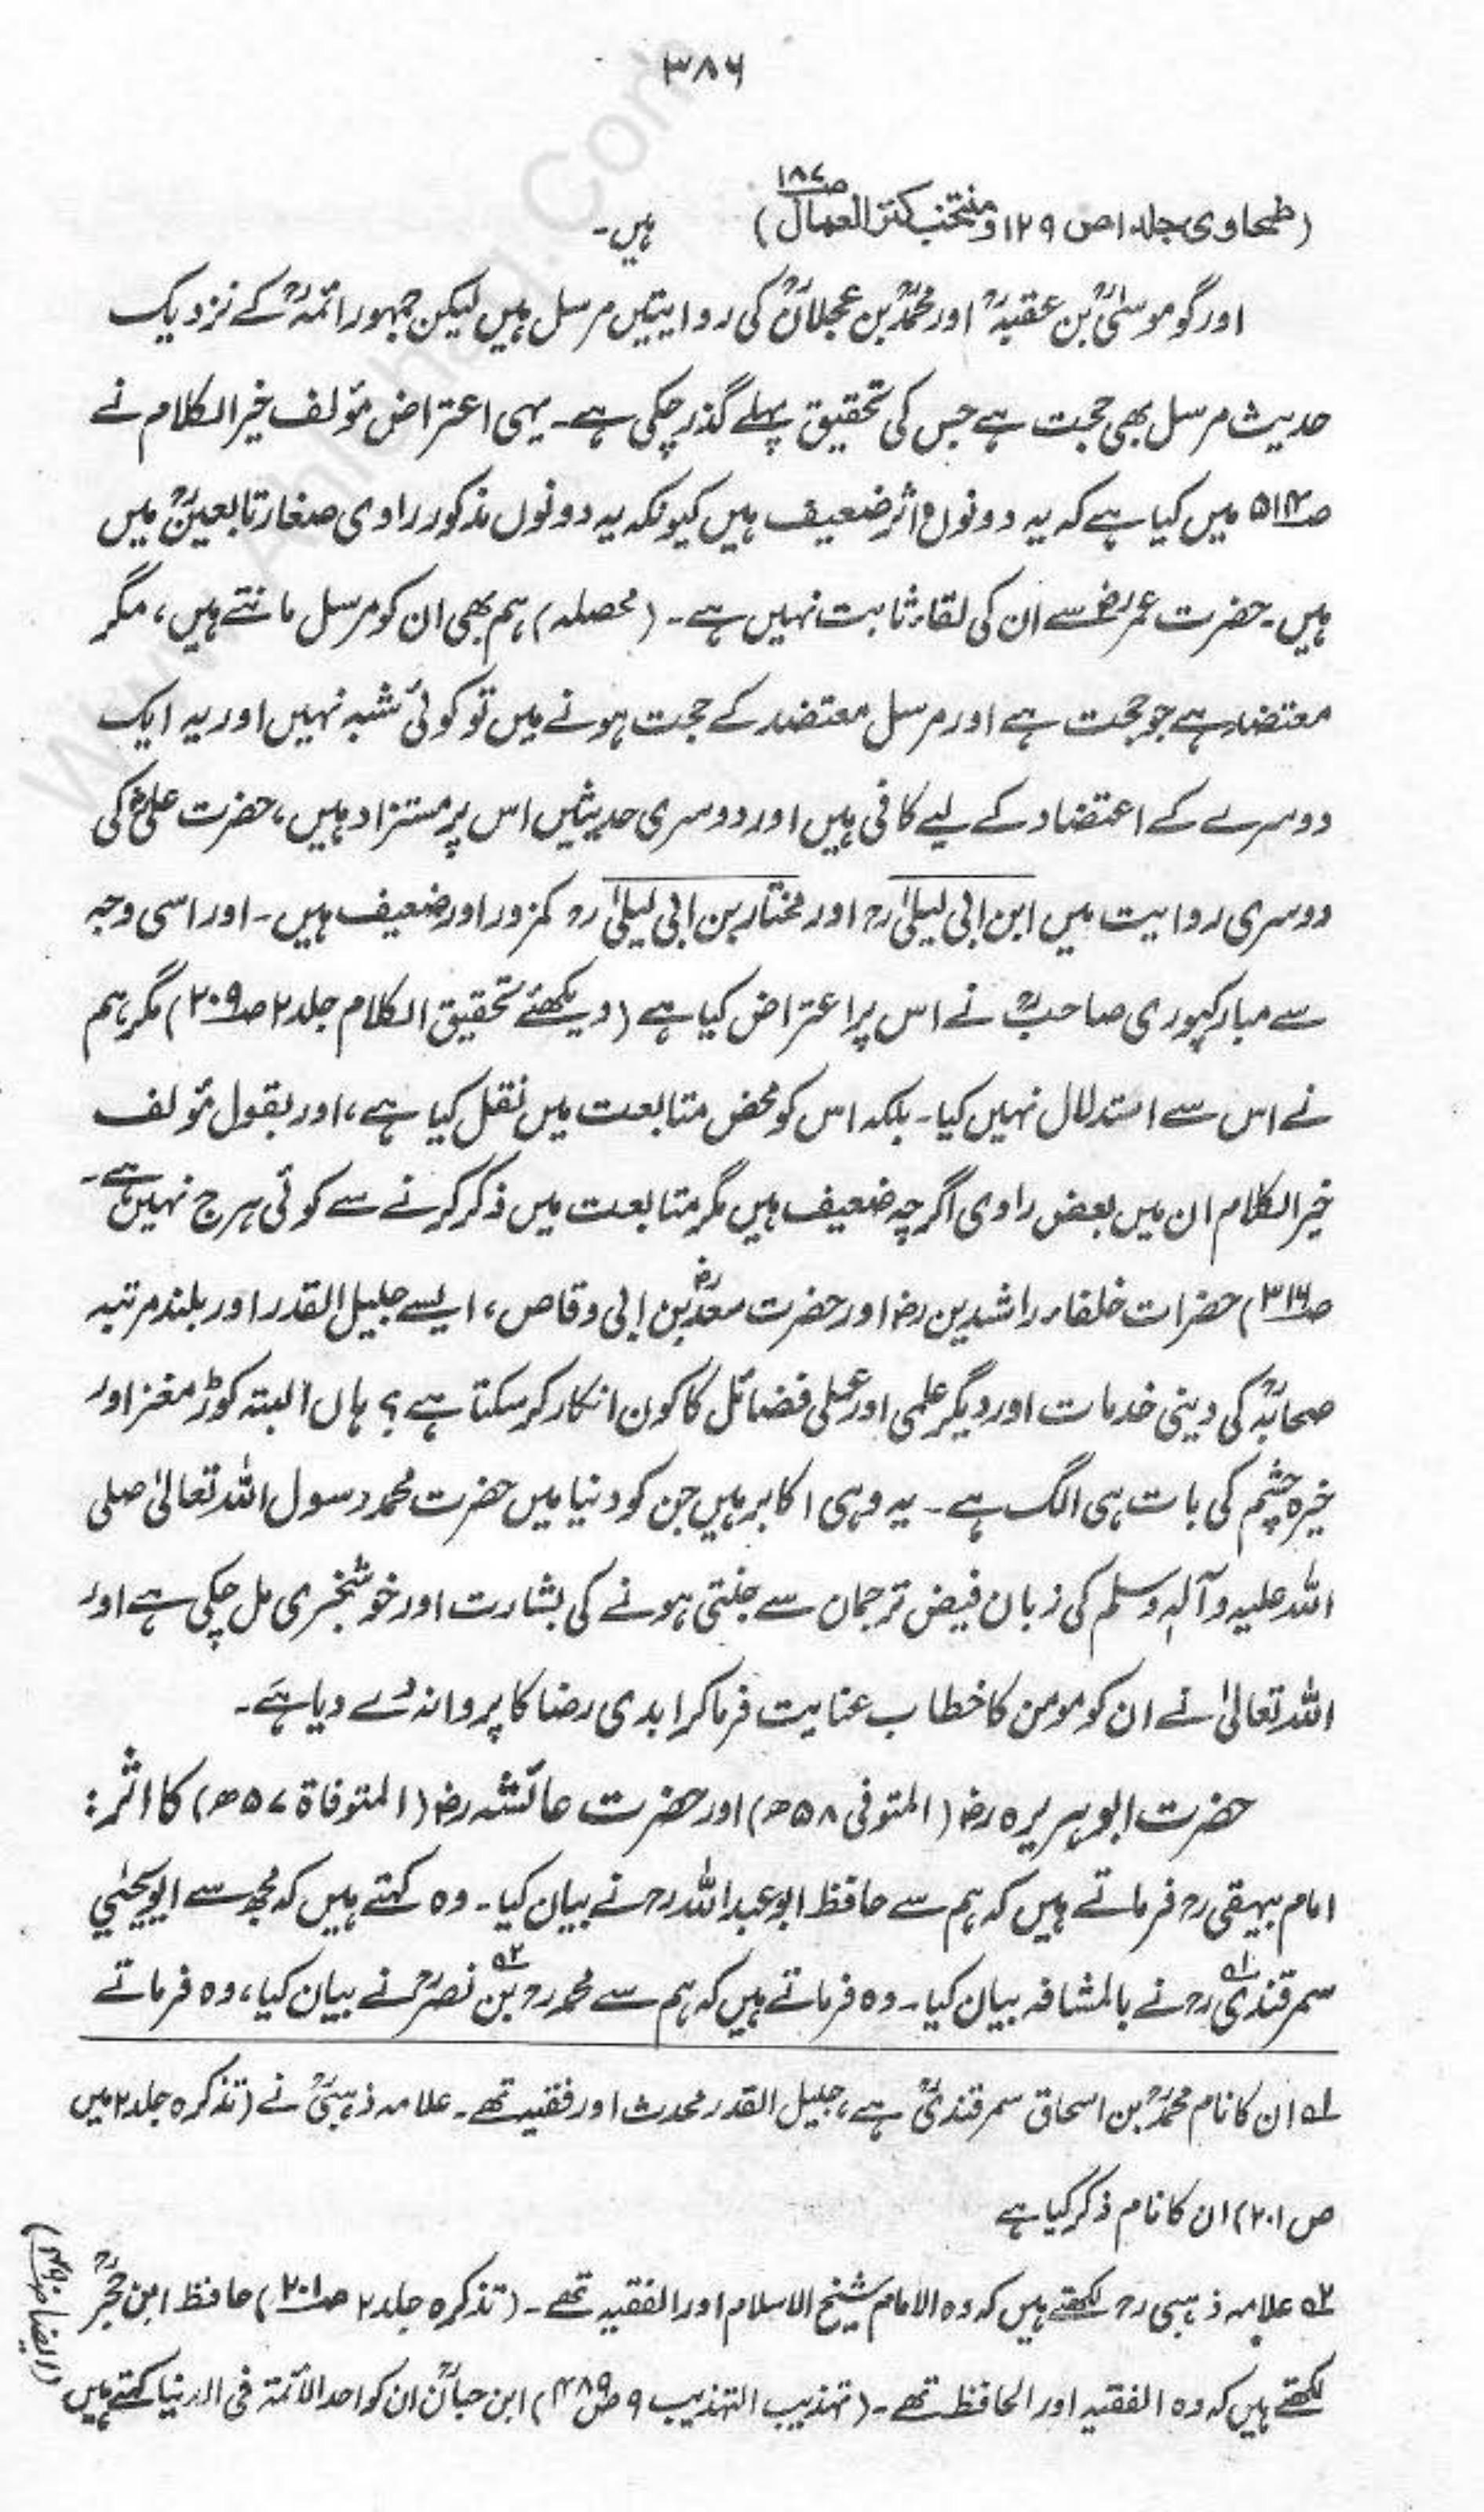 ۳۸۶
(طحاوی جلد ۱ ص ۱۲۹ و منتخب کنز العمال ص۱۸۷) ہیں۔
اور گو موسیٰؒ بن عقبہؒ اور محمدؒ بن عجلانؒ کی روایتیں مرسل ہیں لیکن جمہور ائمہؒ کے نزدیک
حدیث مرسل بھی حجت ہے جس کی تحقیق پہلے گذر چکی ہے۔ یہی اعتراض مؤلف خیر الکلام نے
ص۵۱۲ میں کیا ہے کہ یہ دونوں اثر ضعیف ہیں کیونکہ یہ دونوں مذکور راوی صغار تابعینؒ میں
ہیں۔ حضرت عمر رضؓ سے ان کی لقاء ثابت نہیں ہے۔ (محصلہ) ہم بھی ان کو مرسل مانتے ہیں، مگر
معتضد ہے جو حجت ہے اور مرسل معتضد کے حجت ہونے میں تو کوئی شبہ نہیں اور یہ ایک
دوسرے کے اعتضاد کے لیے کافی ہیں اور دوسری حدیثیں اس پر مستزاد ہیں، حضرت علیؓ کی
دوسری روایت میں ابن ابی لیلیٰ رح اور مختار بن ابی لیلیٰ رح کمزور اور ضعیف ہیں۔ اور اسی وجہ
سے مبارکپوری صاحبؒ نے اس پر اعتراض کیا ہے (دیکھئے تحقیق الکلام جلد ۲ ص۲۰۹) مگر ہم
نے اس سے استدلال نہیں کیا۔ بلکہ اس کو محض متابعت میں نقل کیا ہے، اور بقول مؤلف
خیر الکلام ان میں بعض راوی اگرچہ ضعیف ہیں مگر متابعت میں ذکر کرنے سے کوئی ہرج نہیں ہے۔
ص۳۱۴) حضرات خلفاء راشدین رض اور حضرت سعدؓ بن ابی وقاص رض، ایسے جلیل القدر اور بلند مرتبہ
صحابہؓ کی دینی خدمات اور دیگر علمی اور عملی فضائل کا کون انکار کر سکتا ہے؟ ہاں البتہ کوڑ مغز اور
خیرہ چشم کی بات ہی الگ ہے۔ یہ وہی اکابر ہیں جن کو دنیا میں حضرت محمد رسول اللہ تعالیٰ صلی
اللہ علیہ وآلہٖ وسلم کی زبان فیض ترجمان سے جنتی ہونے کی بشارت اور خوشخبری مل چکی ہے اور
اللہ تعالیٰ نے ان کو مومن کا خطاب عنایت فرما کر ابدی رضا کا پروانہ دے دیا ہے۔
حضرت ابو ہریرہ رض (المتوفی ۵۸ھ) اور حضرت عائشہ رض (المتوفاۃ ۵۷ھ) کا اثر:
امام بیہقی رح فرماتے ہیں کہ ہم سے حافظ ابو عبد اللہ رح نے بیان کیا۔ وہ کہتے ہیں کہ مجھ سے ابو یحییٰ
سمرقندی رح۱ نے بالمشافہ بیان کیا۔ وہ فرماتے ہیں کہ ہم سے محمد رح بن نصرؒ۲ نے بیان کیا، وہ فرماتے
۱ ان کا نام محمدؒ بن اسحاق سمرقندیؒ ہے، جلیل القدر محدث اور فقیہ تھے۔ علامہ ذہبیؒ نے (تذکرہ جلد ۲ میں
ص ۲۰۱) ان کا نام ذکر کیا ہے
۲ علامہ ذہبی رح لکھتے ہیں کہ وہ الامام شیخ الاسلام اور الفقیہ تھے۔ (تذکرہ جلد ۲ ص۲۰۱) حافظ ابن حجرؒ
لکھتے ہیں کہ وہ الفقیہ اور الحافظ تھے۔ (تہذیب التہذیب ۹ ص۴۸۹) ابن حبانؒ ان کو احد الائمۃ فی الدنیا کہتے ہیں
(ایضا ص۴۹۰)
www.Ahlehaq.Com